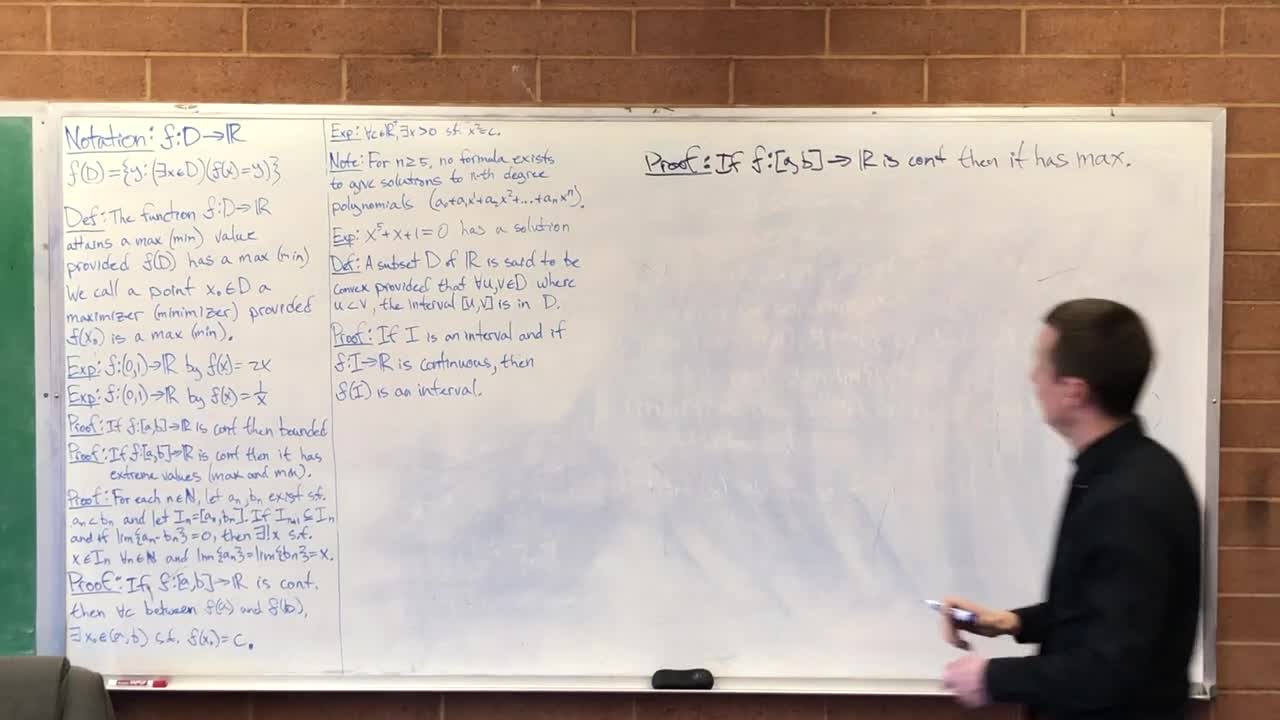 Notation: f:D→ℝ
f(D)={y:(∃x∈D)(f(x)=y)}
Def: The function f:D→ℝ
attains a max (min) value
provided f(D) has a max (min)
We call a point x₀∈D a
maximizer (minimizer) provided
f(x₀) is a max (min).
Exp: f:(0,1)→ℝ by f(x)=2x
Exp: f:(0,1)→ℝ by f(x)=1/x
Proof: If f:[a,b]→ℝ is cont then bounded
Proof: If f:[a,b]→ℝ is cont then it has
extreme values (max and min).
Proof: For each n∈ℕ, let aₙ, bₙ exist s.t.
aₙ<bₙ and let Iₙ=[aₙ,bₙ]. If Iₙ₊₁⊆Iₙ
and if lim{aₙ-bₙ}=0, then ∃!x s.t.
x∈Iₙ ∀n∈ℕ and lim{aₙ}=lim{bₙ}=x.
Proof: If f:[a,b]→ℝ is cont.
then ∀c between f(a) and f(b),
∃x₀∈(a,b) s.t. f(x₀)=c.
Exp: ∀c∈ℝ⁺, ∃x>0 st. x²=c.
Note: For n≥5, no formula exists
to give solutions to n-th degree
polynomials (a₀+a₁x¹+a₂x²+...+aₙxⁿ).
Exp: x⁵+x+1=0 has a solution
Def: A subset D of ℝ is said to be
convex provided that ∀u,v∈D where
u<v, the interval [u,v] is in D.
Proof: If I is an interval and if
f:I→ℝ is continuous, then
f(I) is an interval.
Proof: If f:[a,b]→ℝ is cont then it has max.